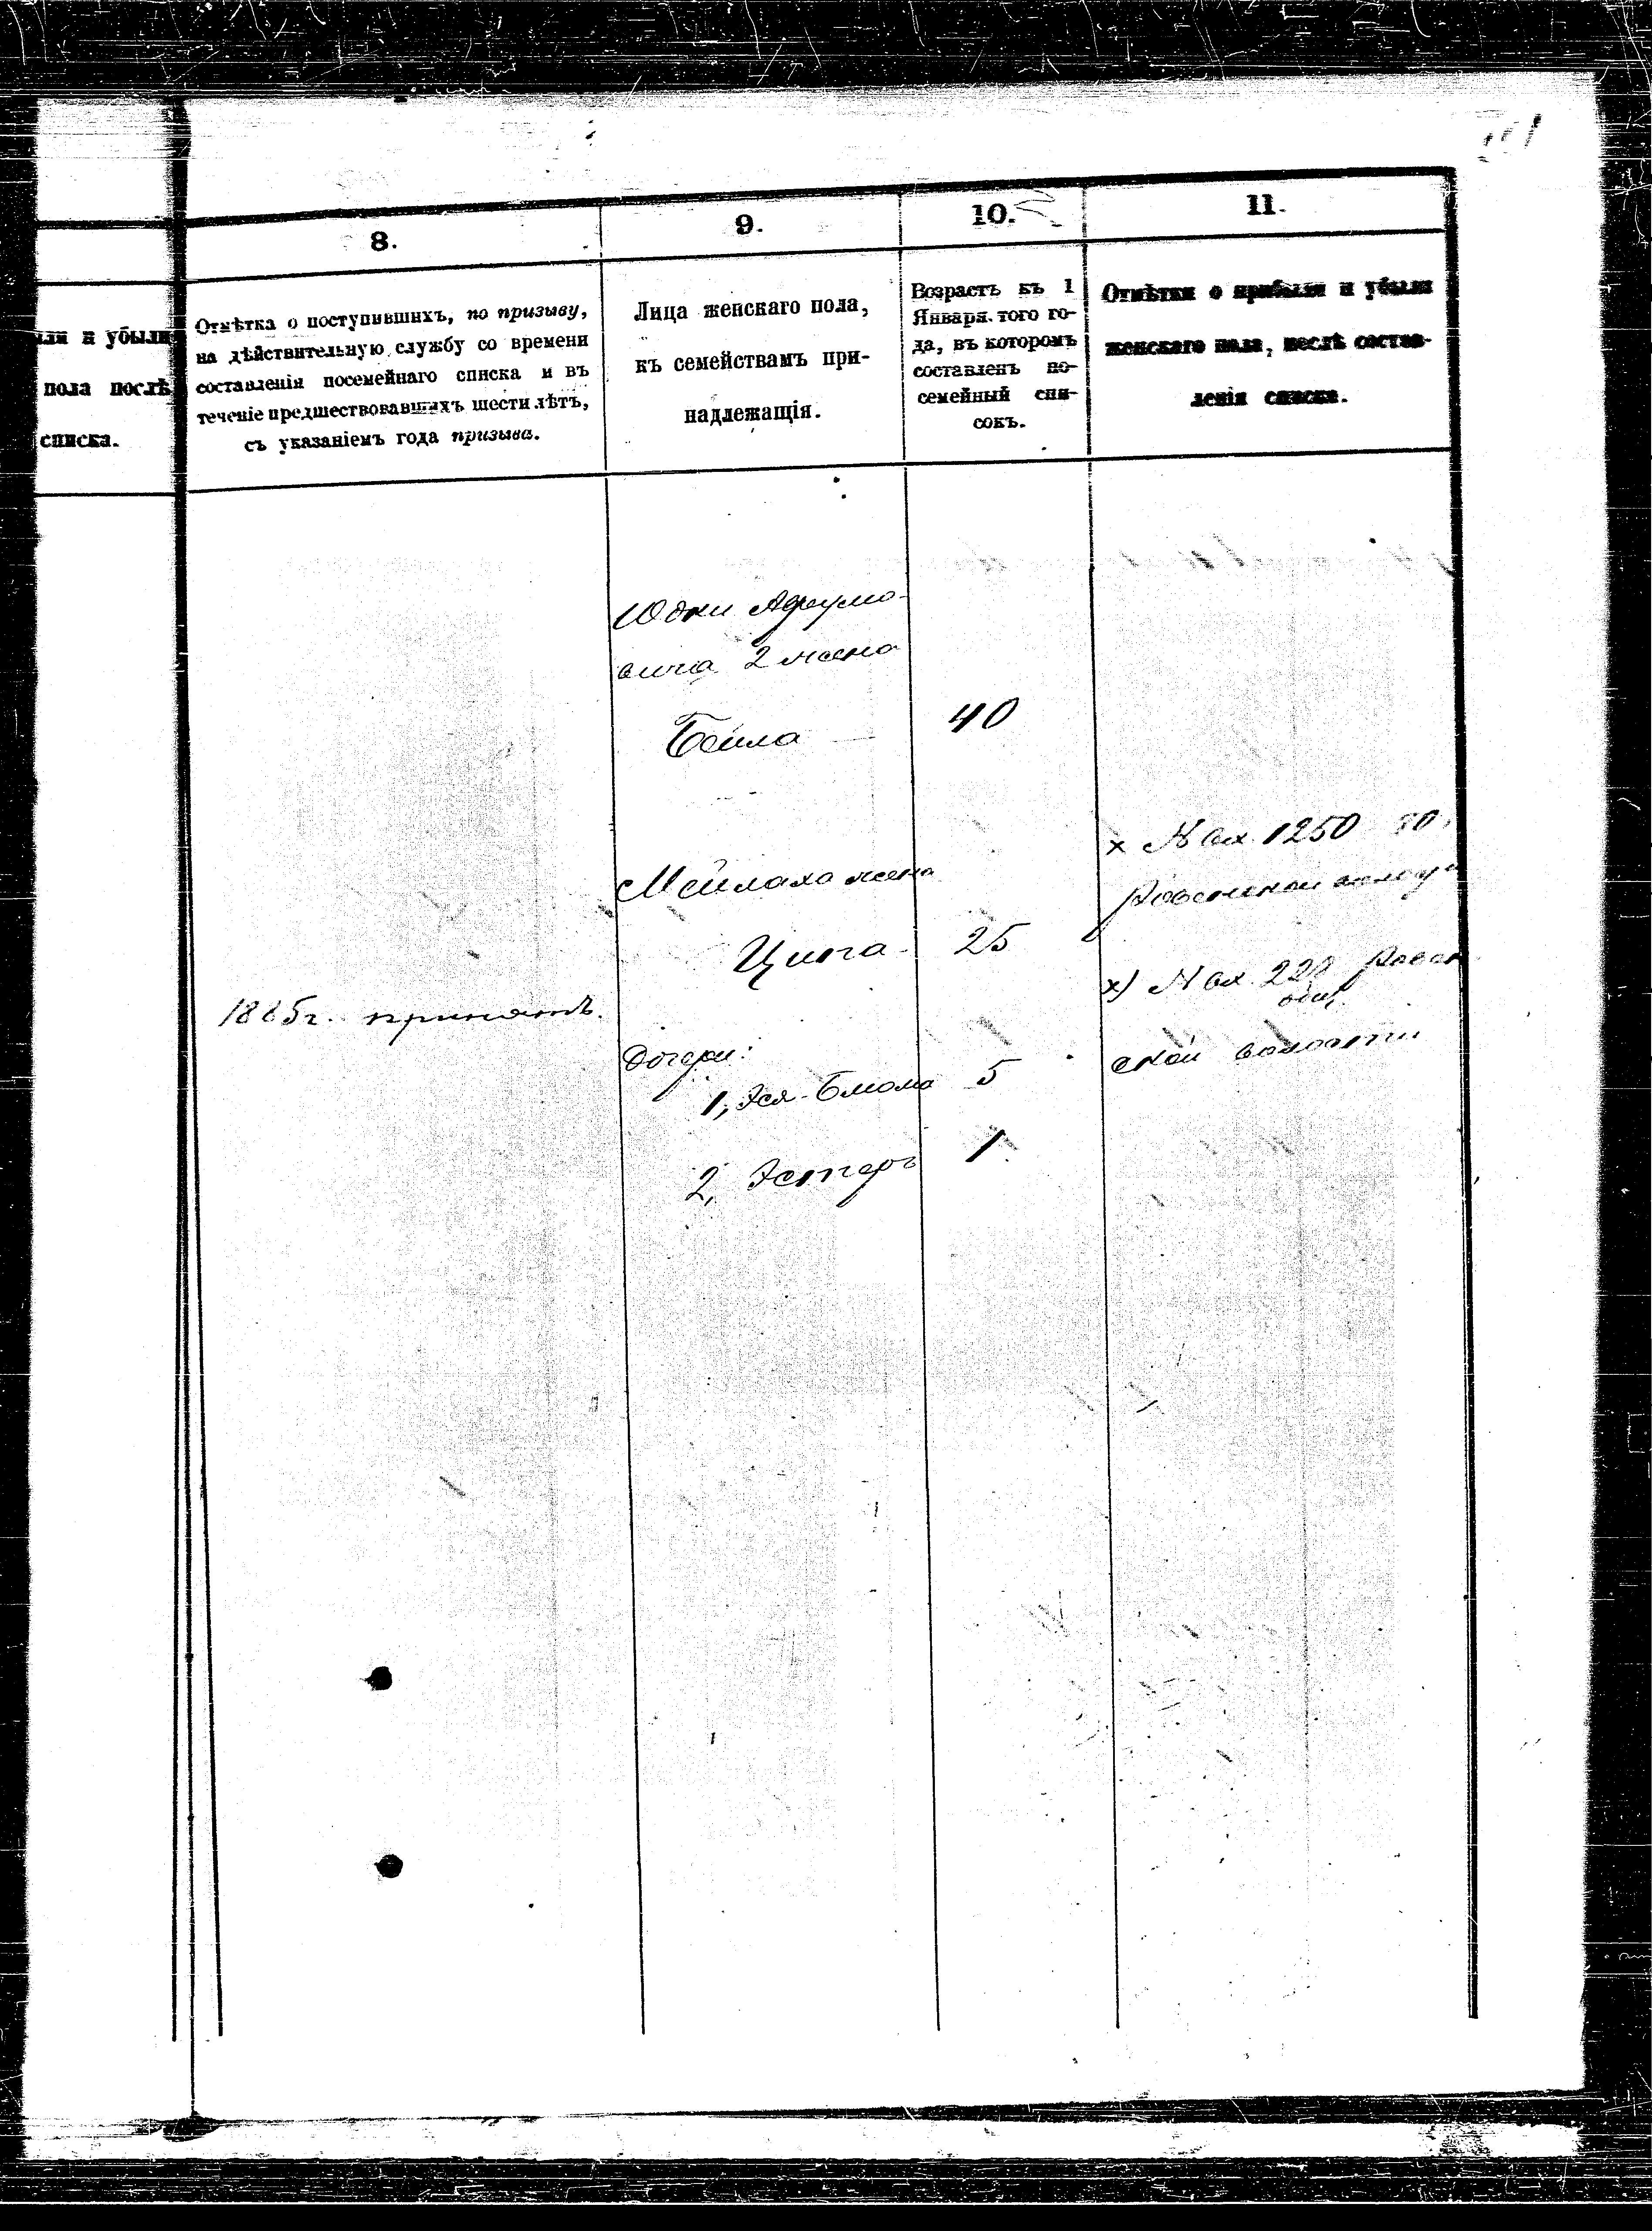 8.
9.
10.
11.
ли и убыли
пола послѣ
списка.
Отмѣтка о поступившихъ, по призыву,
на дѣйствительную службу со времени
составленія посемейнаго списка и въ
теченіе предшествовавшихъ шести лѣтъ,
съ указаніемъ года призыва.
Лица женскаго пола,
къ семействамъ при-
надлежащія.
Возрастъ къ 1
Января того го-
да, въ которомъ
составленъ по-
семейный спи-
сокъ.
Отмѣтки о прибыли и убыли
женскаго пола, послѣ состав-
ленія списка.
Юдки
вича 2 жена
Бейла 40
Мейлаха жена
Ципа 25
1885г. принятъ.
Дочери:
1, Эся- 5
2, Эстеръ 1
x № вх. 1250
x) № вх.
ской волости